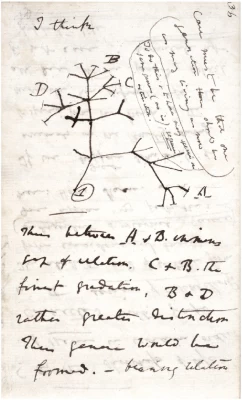 I think
36
Case must be that one
generation then should be
as many living as now
To do this & to have many species in
same genus (as is) requires
extinction.
B
D
C
A
1
Thus between A & B. immens
gap of relation. C & B. the
finest gradation, B & D
rather greater distinction
Thus genera would be
formed. — bearing relation